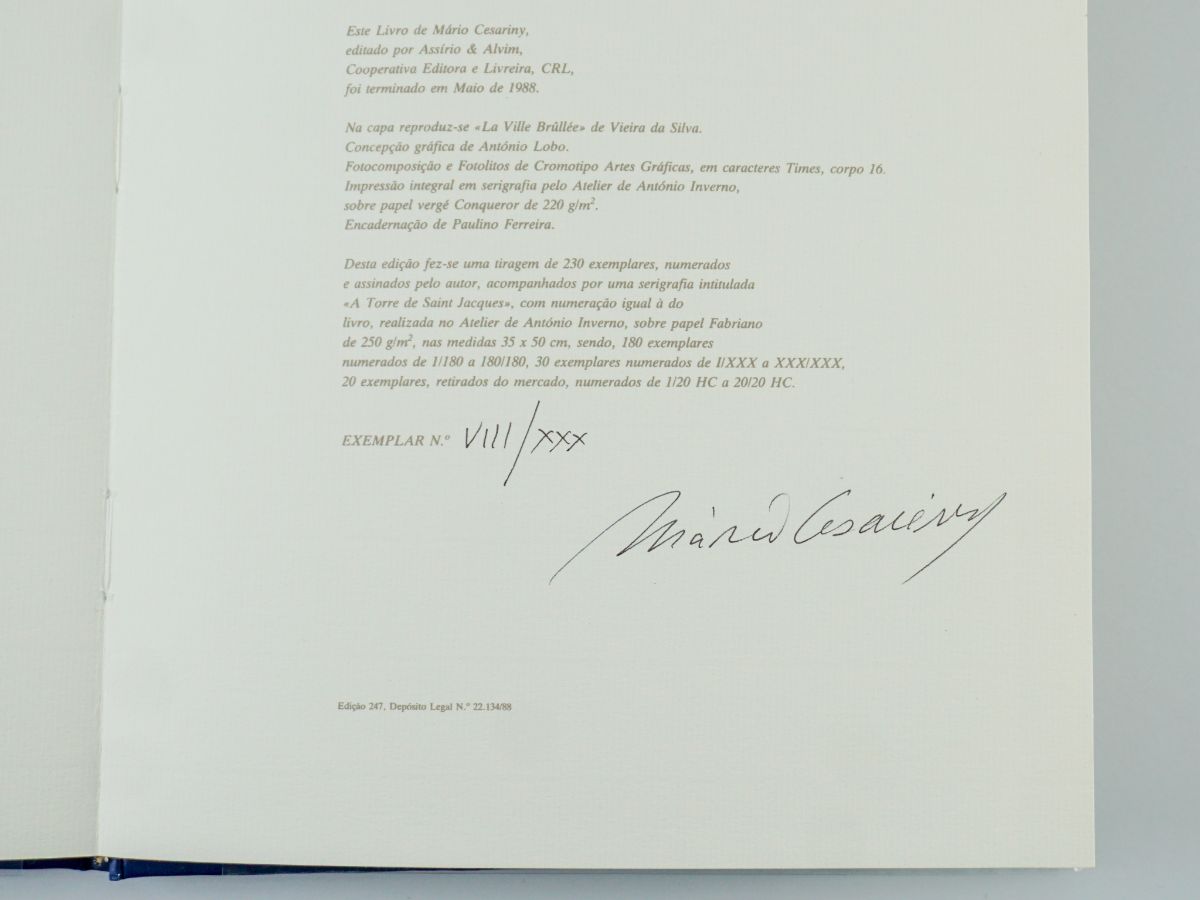 Este Livro de Mário Cesariny,
editado por Assírio & Alvim,
Cooperativa Editora e Livreira, CRL,
foi terminado em Maio de 1988.
Na capa reproduz-se «La Ville Brûllée» de Vieira da Silva.
Concepção gráfica de António Lobo.
Fotocomposição e Fotolitos de Cromotipo Artes Gráficas, em caracteres Times, corpo 16.
Impressão integral em serigrafia pelo Atelier de António Inverno,
sobre papel vergé Conqueror de 220 g/m².
Encadernação de Paulino Ferreira.
Desta edição fez-se uma tiragem de 230 exemplares, numerados
e assinados pelo autor, acompanhados por uma serigrafia intitulada
«A Torre de Saint Jacques», com numeração igual à do
livro, realizada no Atelier de António Inverno, sobre papel Fabriano
de 250 g/m², nas medidas 35 x 50 cm, sendo, 180 exemplares
numerados de 1/180 a 180/180, 30 exemplares numerados de I/XXX a XXX/XXX,
20 exemplares, retirados do mercado, numerados de 1/20 HC a 20/20 HC.
EXEMPLAR N.º VIII/XXX
Mário Cesariny
Edição 247, Depósito Legal N.º 22.134/88